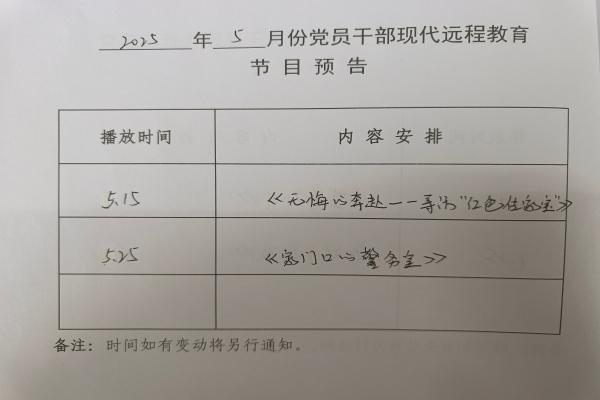 2025年5月份党员干部现代远程教育
节目预告
播放时间 内容安排
5.15 《无悔的奔赴——寻访"红色传家宝"》
5.25 《家门口的警务室》
备注：时间如有变动将另行通知。